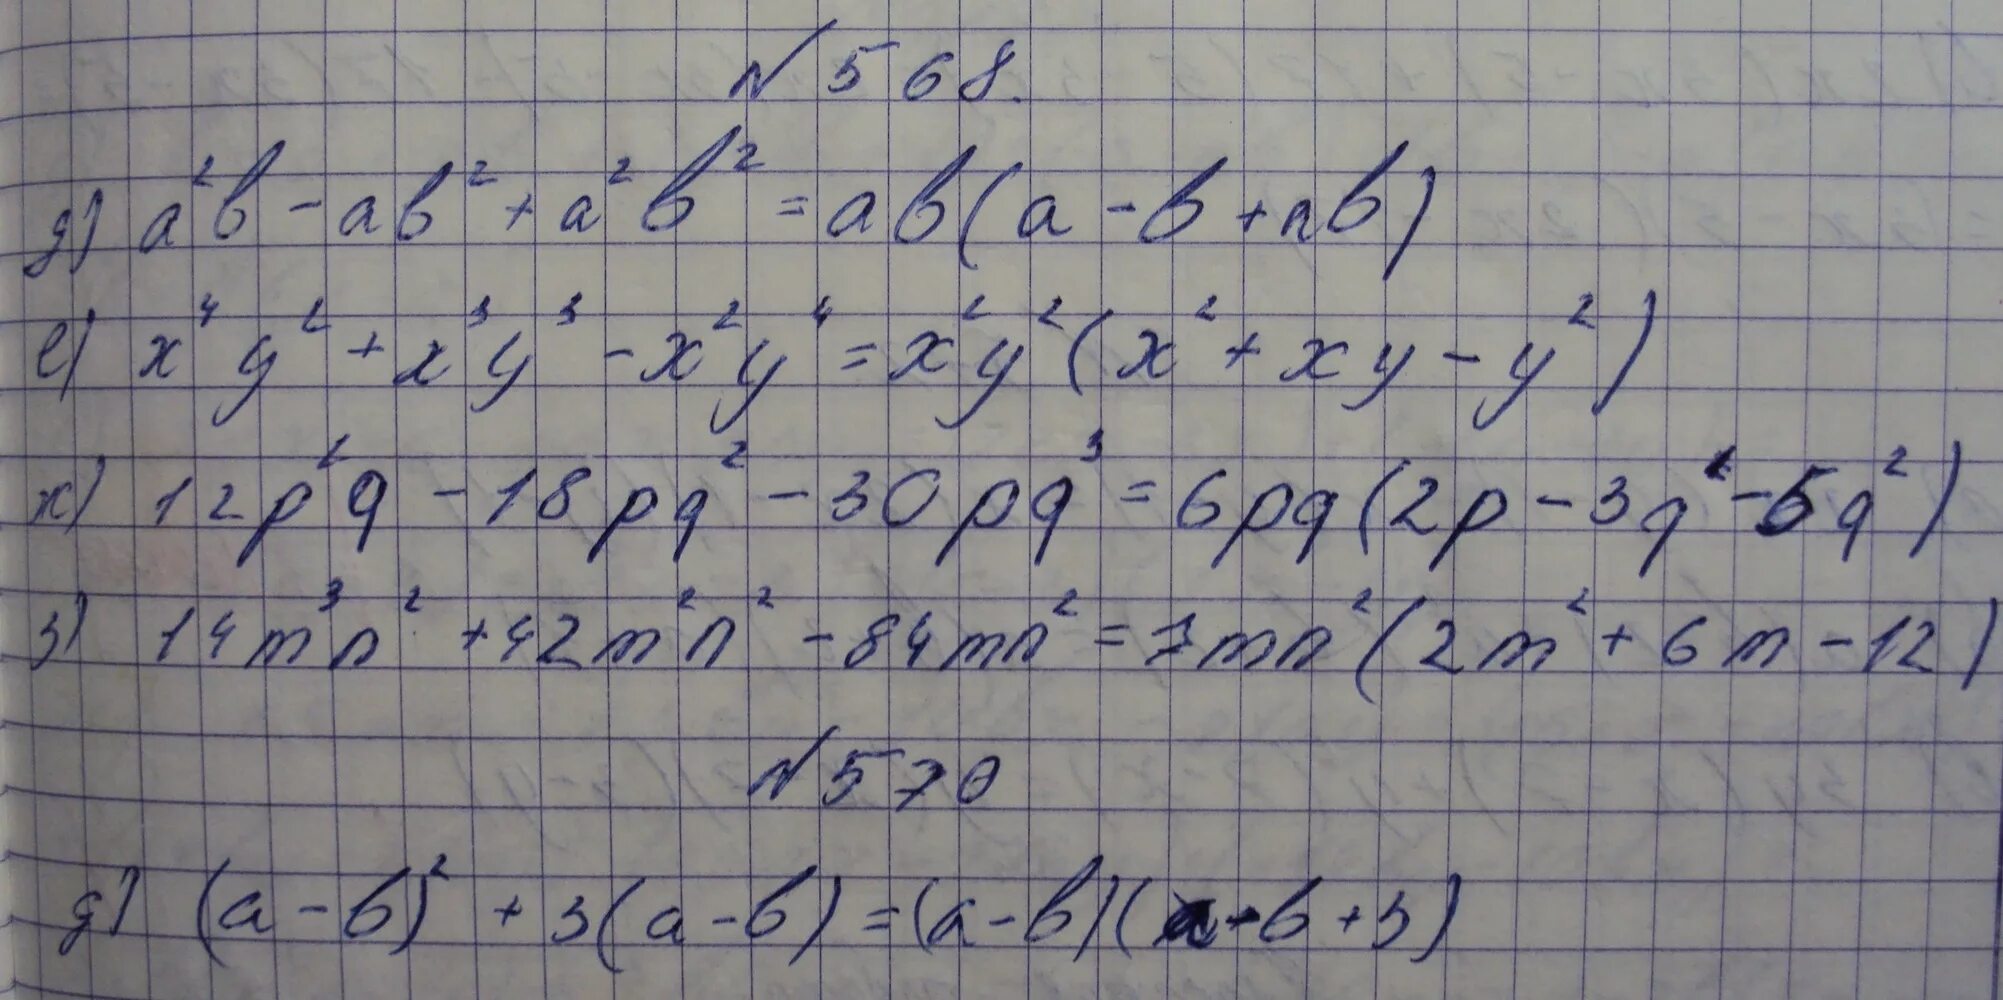 № 568.
д) a²b - ab² + a²b² = ab(a - b + ab)
е) x⁴y² + x³y³ - x²y⁴ = x²y²(x² + xy - y²)
ж) 12p²q - 18pq² - 30pq³ = 6pq(2p - 3q - 5q²)
з) 14m³n² + 42m²n² - 84mn² = 7mn²(2m² + 6m - 12)
№ 570
д) (a - b)² + 3(a - b) = (a - b)(a - b + 3)